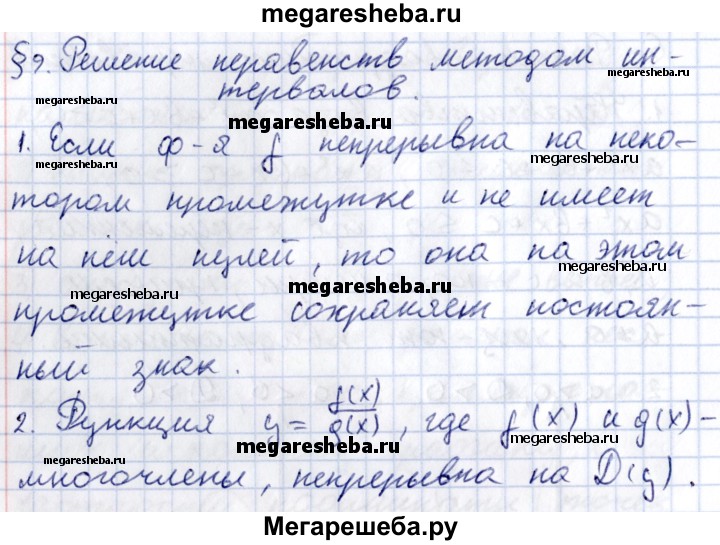 megaresheba.ru
§9. Решение неравенств методом ин-
тервалов.
megaresheba.ru
megaresheba.ru
megaresheba.ru
1. Если ф-я f непрерывна на неко-
megaresheba.ru
megaresheba.ru
тором промежутке и не имеет
на нём нулей, то она на этом
megaresheba.ru
megaresheba.ru
megaresheba.ru
промежутке сохраняет постоян-
ный знак.
2. Функция y = f(x)/g(x), где f(x) и g(x) -
megaresheba.ru
megaresheba.ru
megaresheba.ru
многочлены, непрерывна на D(y).
Мегарешеба.ру